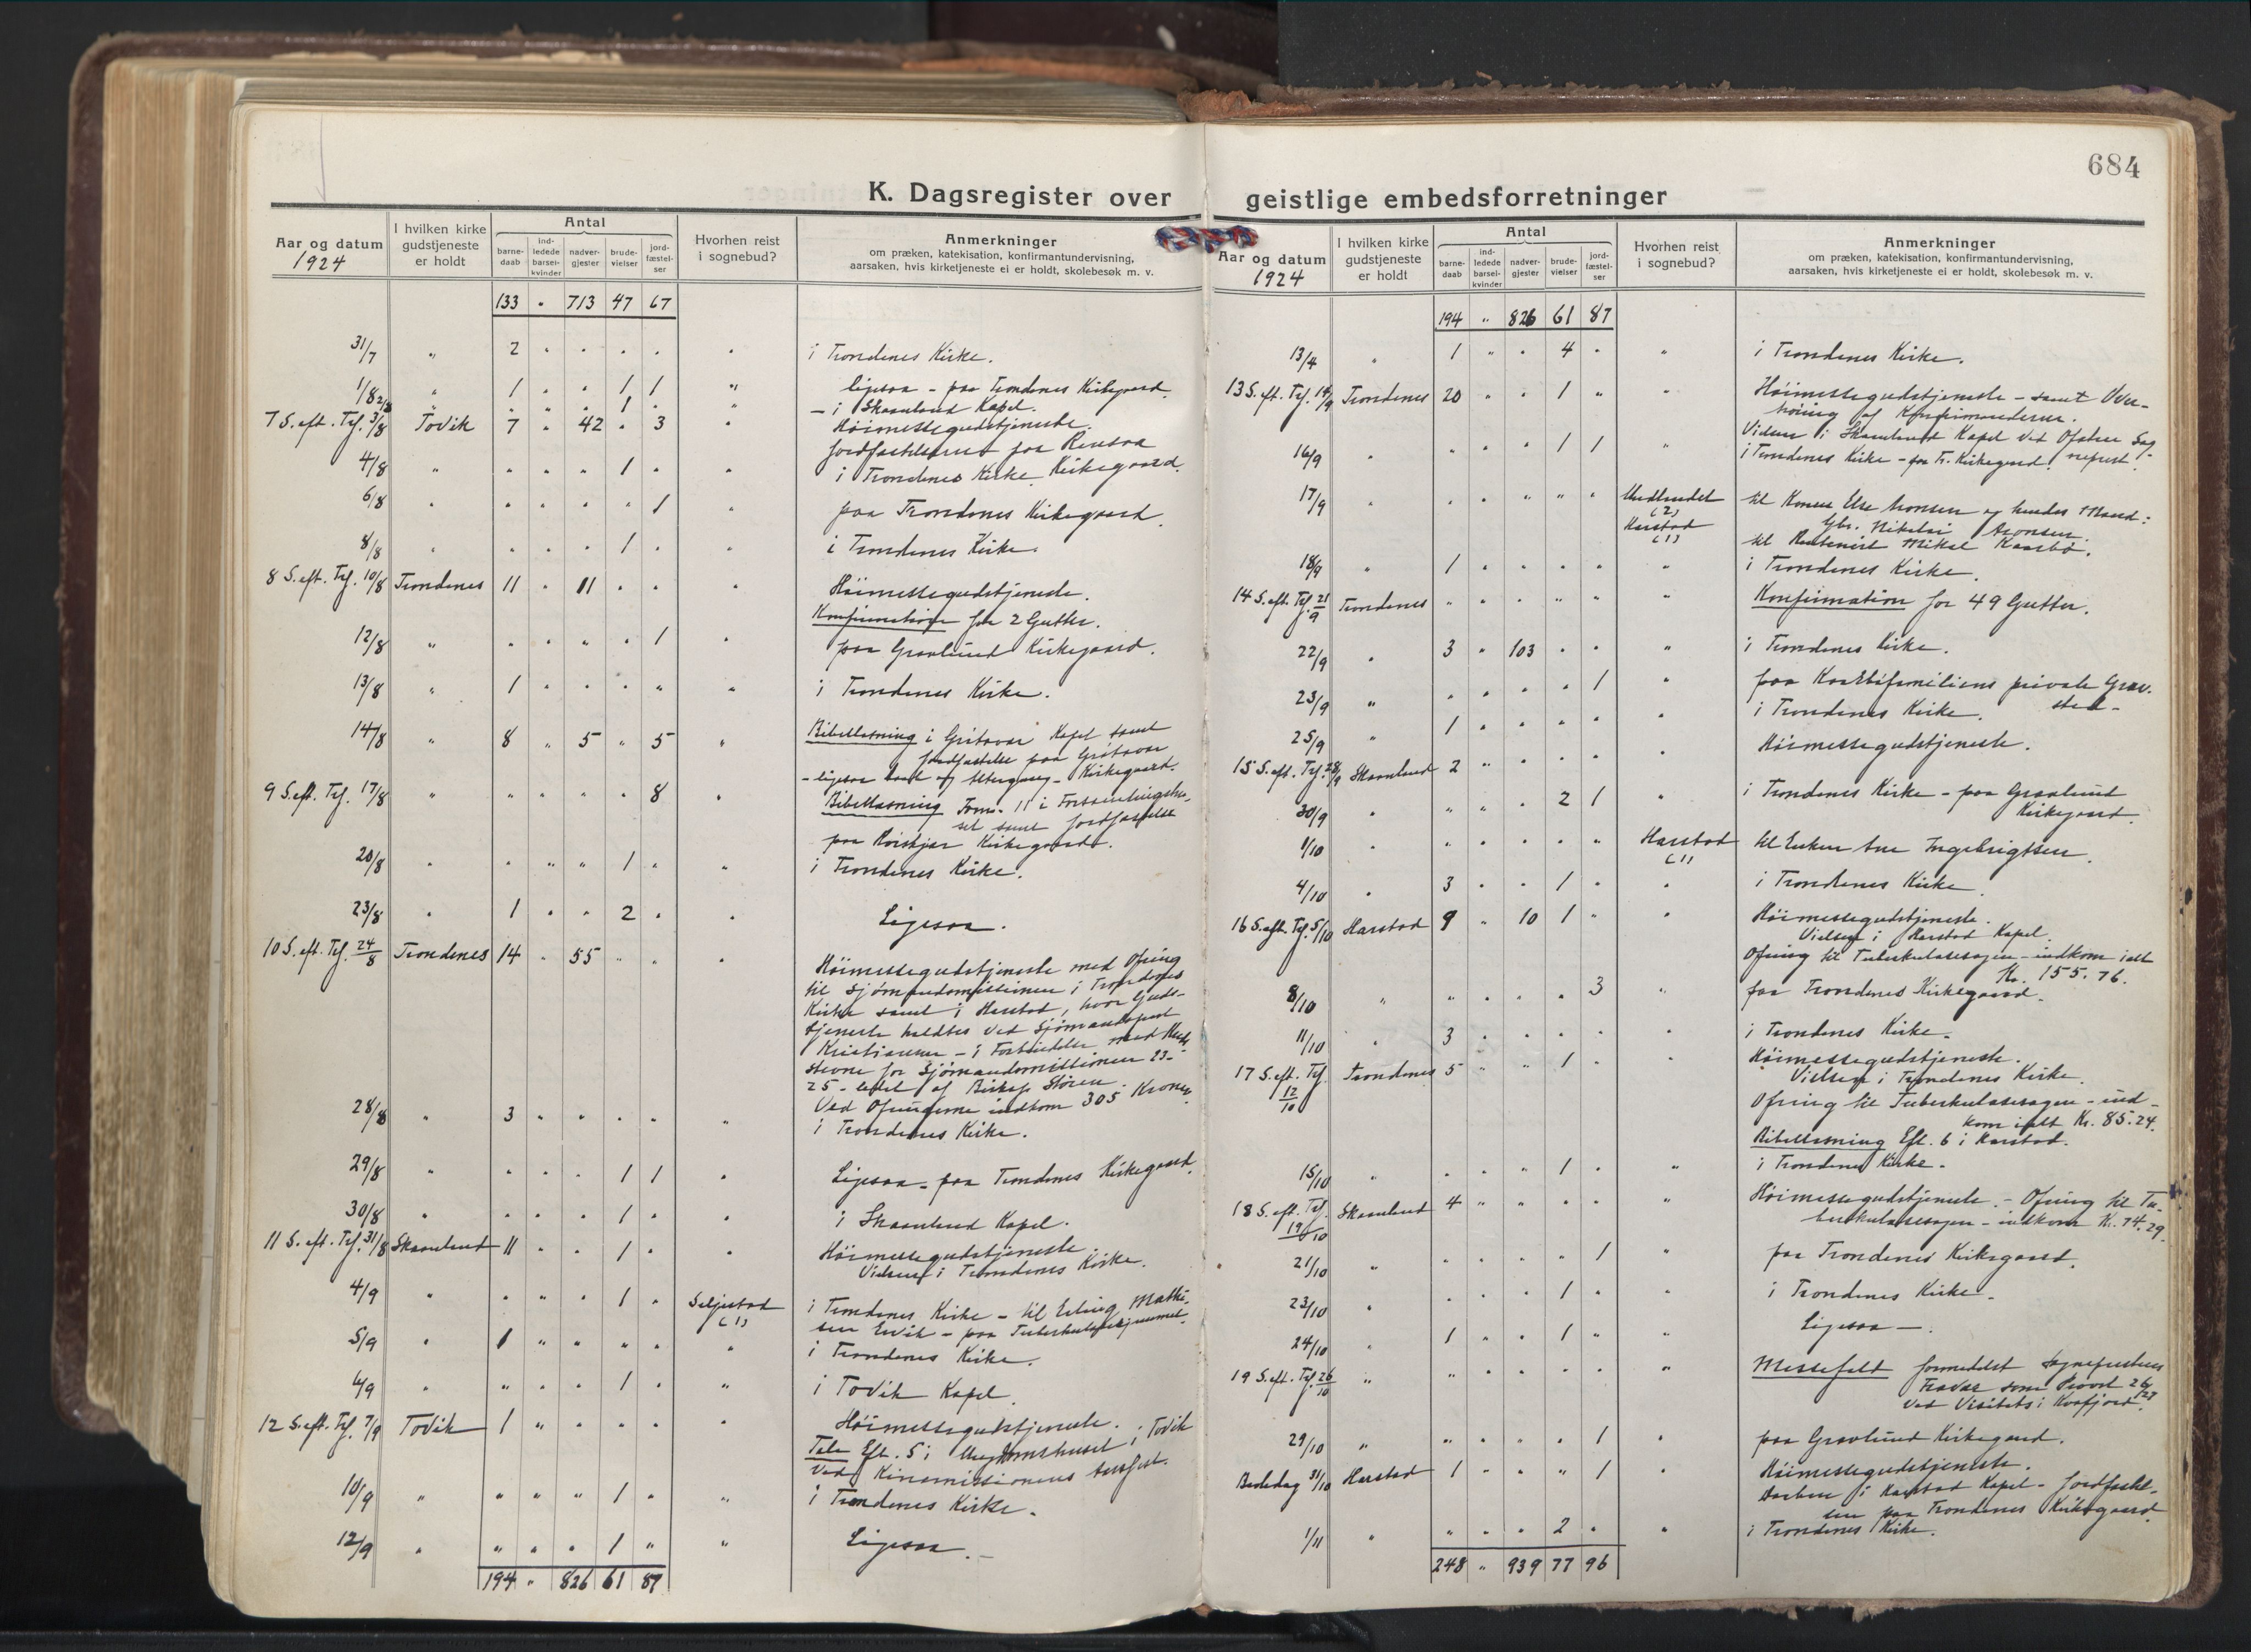 684
K. Dagsregister over
Aar og datum
1924
I hvilken kirke
gudstjeneste
er holdt
Antal
barne-
daab
ind-
ledede
barsel-
kvinder
nadver-
gjester
brude-
vielser
jord-
fæstel-
ser
Hvorhen reist
i sognebud?
Anmerkninger
om præken, katekisation, konfirmantundervisning,
aarsaken, hvis kirketjeneste ei er holdt, skolebesøk m. v.
133 " 713 47 67
31/7 " 2 " " " " " i Trondenes Kirke.
1/8 " 1 " " 1 1 " ligesaa - paa Trondenes Kirkegaard.
2/8 " " " " 1 " " - i Skaanland Kapel.
7 S. eft. Trf. 3/8 Tovik 7 " 42 " 3 " Höimessegudstjeneste.
Jordfæstelserne paa Rensaa
Kirkegaard.
4/8 " " " " 1 " " i Trondenes Kirke.
6/8 " " " " " 1 " paa Trondenes Kirkegaard.
8/8 " " " " 1 " " i Trondenes Kirke.
8 S. eft. Trf. 10/8 Trondenes 11 " 11 " " " Höimessegudstjeneste.
Konfirmation for 2 Gutter.
12/8 " " " " " 1 " paa Gravlund Kirkegaard.
13/8 " 1 " " " " " i Trondenes Kirke.
14/8 " 8 " 5 " 5 " Bibellæsning i Grötavær Kapel samt
Jordfæstelse paa Grötavær
- ligesaa Daab og Altergang - Kirkegaard.
9 S. eft. Trf. 17/8 " " " " " 8 " Bibellæsning Form. 11 i Forsamlingshu-
set samt Jordfæstelse
paa Kirkegaard.
20/8 " " " " 1 " " i Trondenes Kirke.
23/8 " 1 " " 2 " " Ligesaa.
10 S. eft. Trf. 24/8 Trondenes 14 " 55 " " " Höimessegudstjeneste med Ofring
til Sjömandsmissionen i Trondenes
Kirke samt i Harstad, hvor Guds-
tjeneste holdtes ved Sjömandsprest
Kristiansen - i Forbindelse med
stevne for Sjömandsmissionen 23-
25 - ledet af Biskop Stören.
Ved Ofringerne indkom 305 Kroner.
28/8 " 3 " " " " " i Trondenes Kirke.
29/8 " " " " 1 1 " Ligesaa - paa Trondenes Kirkegaard.
30/8 " " " " 1 " " i Skaanland Kapel.
11 S. eft. Trf. 31/8 Skaanland 11 " " 1 " " Höimessegudstjeneste
Vielsen i Trondenes Kirke.
4/9 " " " " 1 " Seljestad (1) i Trondenes Kirke - til Erling Mathi-
sen Ervik - paa Tuberkulosehjemmet.
5/9 " 1 " " " " " i Trondenes Kirke.
6/9 " " " " 1 " " i Tovik Kapel.
12 S. eft. Trf. 7/9 Tovik 1 " " " " " Höimessegudstjeneste.
Tale Eft. 5 i Ungdomshuset i Tovik
ved Kinamissionens Aarsfest.
10/9 " " " " 1 " " i Trondenes Kirke.
12/9 " " " " 1 " " Ligesaa. -
194 " 826 61 87
geistlige embedsforretninger
Aar og datum
1924
I hvilken kirke
gudstjeneste
er holdt
Antal
barne-
daab
ind-
ledede
barsel-
kvinder
nadver-
gjester
brude-
vielser
jord-
fæstel-
ser
Hvorhen reist
i sognebud?
Anmerkninger
om præken, katekisation, konfirmantundervisning,
aarsaken, hvis kirketjeneste ei er holdt, skolebesøk m. v.
194 " 826 61 87
13/9 " 1 " " 4 " " i Trondenes Kirke.
13 S. eft. Trf. 14/9 Trondenes 20 " " 1 " " Höimessegudstjeneste - samt Over-
höring af Konfirmanderne.
Vielsen i Skaanland Kapel ved Ofoten Sog-
neprest.
16/9 " " " " 1 1 " i Trondenes Kirke - paa Tr. Kirkegaard.
17/9 " " " " " " (2) til Konen Else Aronsen og hendes Mand:
Gbr. Nikolai Aronsen.
Harstad (1) til Mikal Kaarbö.
18/9 " 1 " " " " " i Trondenes Kirke.
14 S. eft. Trf. 21/9 Trondenes " " " " " " Konfirmation for 49 Gutter.
22/9 " 3 " 103 " " " i Trondenes Kirke.
23/9 " " " " " 1 " paa Kaarböfamiliens private Grav-
sted -
25/9 " 1 " " " " " i Trondenes Kirke.
15 S. eft. Trf. 28/9 Skaanland 2 " " " " " Höimessegudstjeneste.
30/9 " " " " 2 1 " i Trondenes Kirke - paa Gravlund
Kirkegaard.
1/10 " " " " " " Harstad (1) til Enken Ane Ingebrigtsen.
4/10 " 3 " " 1 " " i Trondenes Kirke.
16 S. eft. Trf. 5/10 Harstad 9 " 10 1 " " Höimessegudstjeneste.
Vielsen i Harstad Kapel.
Ofring til Tuberkulosesagen - indkom ialt
Kr. 155.76.
8/10 " " " " " 3 " paa Trondenes Kirkegaard.
11/10 " 3 " " " " " i Trondenes Kirke.
17 S. eft. Trf. 12/10 Trondenes 5 " " 1 " " Höimessegudstjeneste.
Vielsen i Trondenes Kirke.
Ofring til Tuberkulosesagen - ind-
kom ialt Kr. 85.24.
Bibellæsning Eft. 6 i Harstad.
15/10 " " " " 1 " " i Trondenes Kirke.
18 S. eft. Trf. 19/10 Skaanland 4 " " " " " Höimessegudstjeneste. - Ofring til Tu-
berkulosesagen - indkom Kr. 14.29.
21/10 " " " " " 1 " paa Trondenes Kirkegaard.
23/10 " " " " 1 " " i Trondenes Kirke.
24/10 " 1 " " 1 " " Ligesaa -.
19 S. eft. Trf. 26/10 " " " " " " " Messefald formedelst Sogneprestens
Fravær som Provst 26/27
ved Visitats i Kvæfjord.
29/10 " " " " " 1 " paa Gravlund Kirkegaard.
Bededag 31/10 Harstad 1 " " " 1 " Höimessegudstjeneste.
Daaben i Harstad Kapel - Jordfæstel-
sen paa Trondenes Kirkegaard.
1/11 " " " " 2 " " i Trondenes Kirke.
248 " 939 77 96